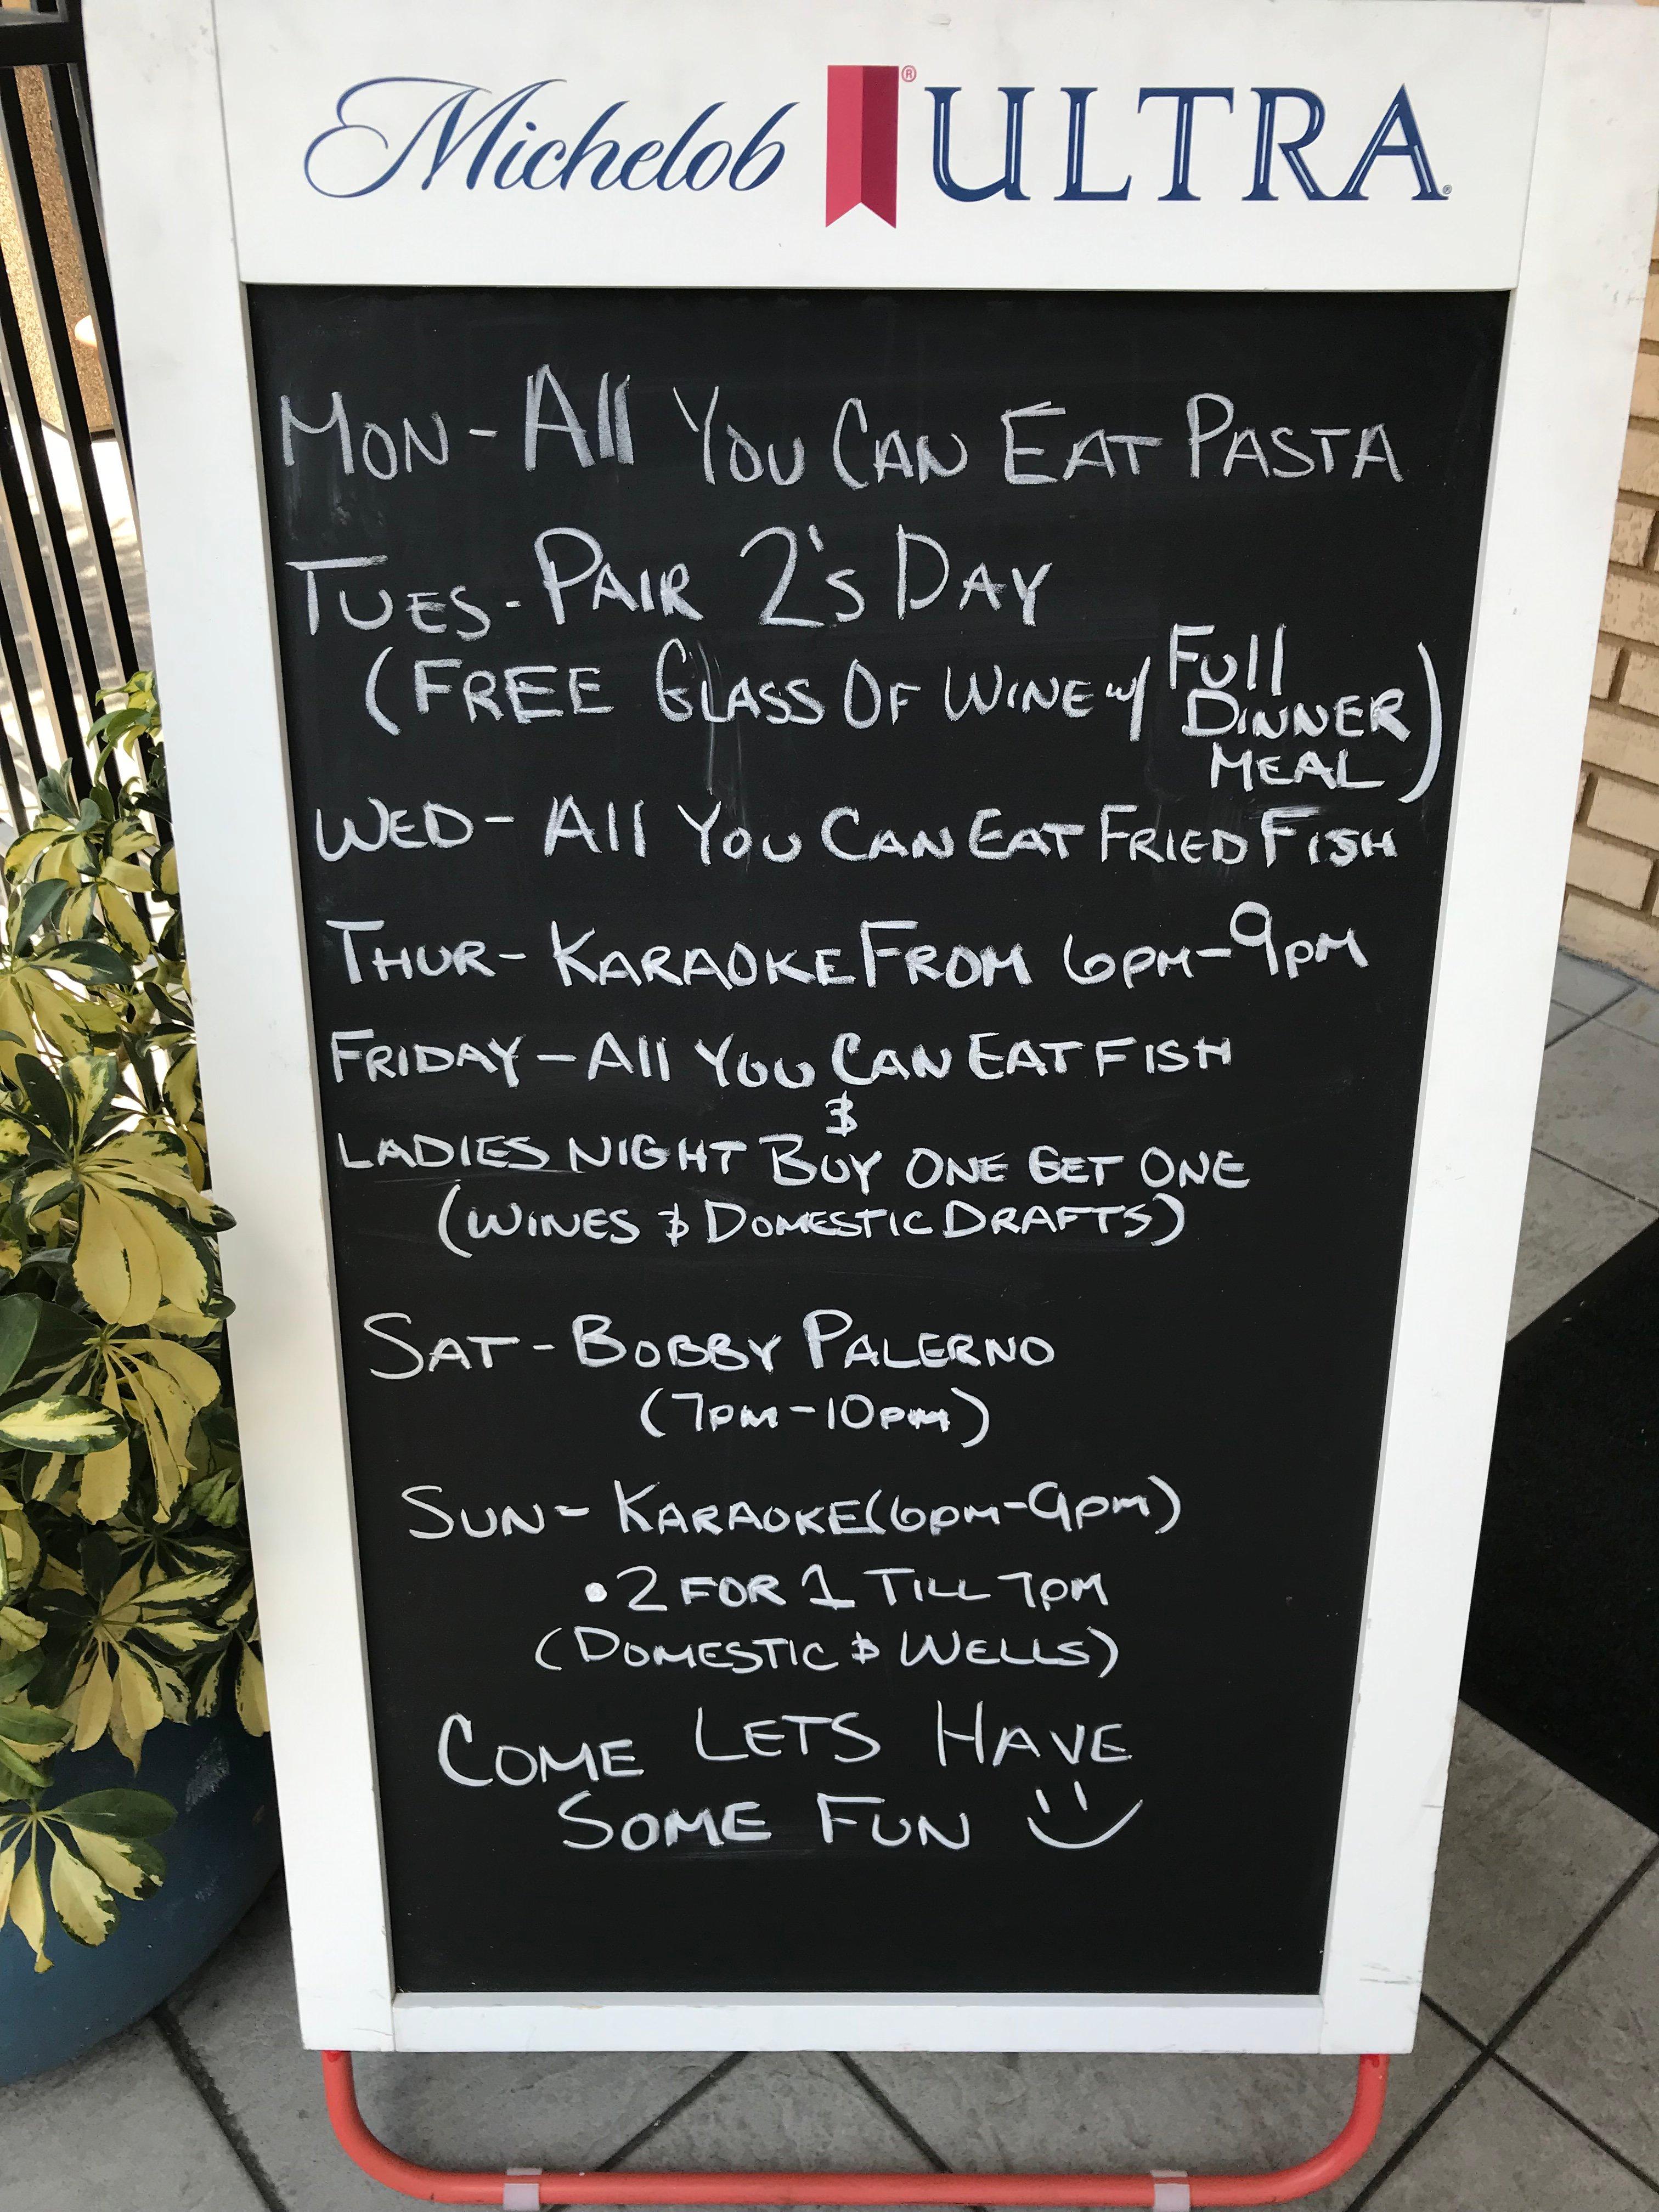 Michelob ULTRA
MON - All YOU CAN EAT PASTA
TUES - PAIR 2's DAY
(FREE GLASS OF WINE w/ Full
DINNER
MEAL)
WED - All YOU CAN EAT FRIED FISH
THUR - KARAOKE FROM 6PM - 9PM
FRIDAY - All YOU CAN EAT FISH
&
LADIES NIGHT BUY ONE GET ONE
(WINES & DOMESTIC DRAFTS)
SAT - BOBBY PALERNO
(7PM - 10PM)
SUN - KARAOKE (6PM - 9PM)
• 2 FOR 1 TILL 7PM
(DOMESTIC & WELLS)
COME LETS HAVE
SOME FUN